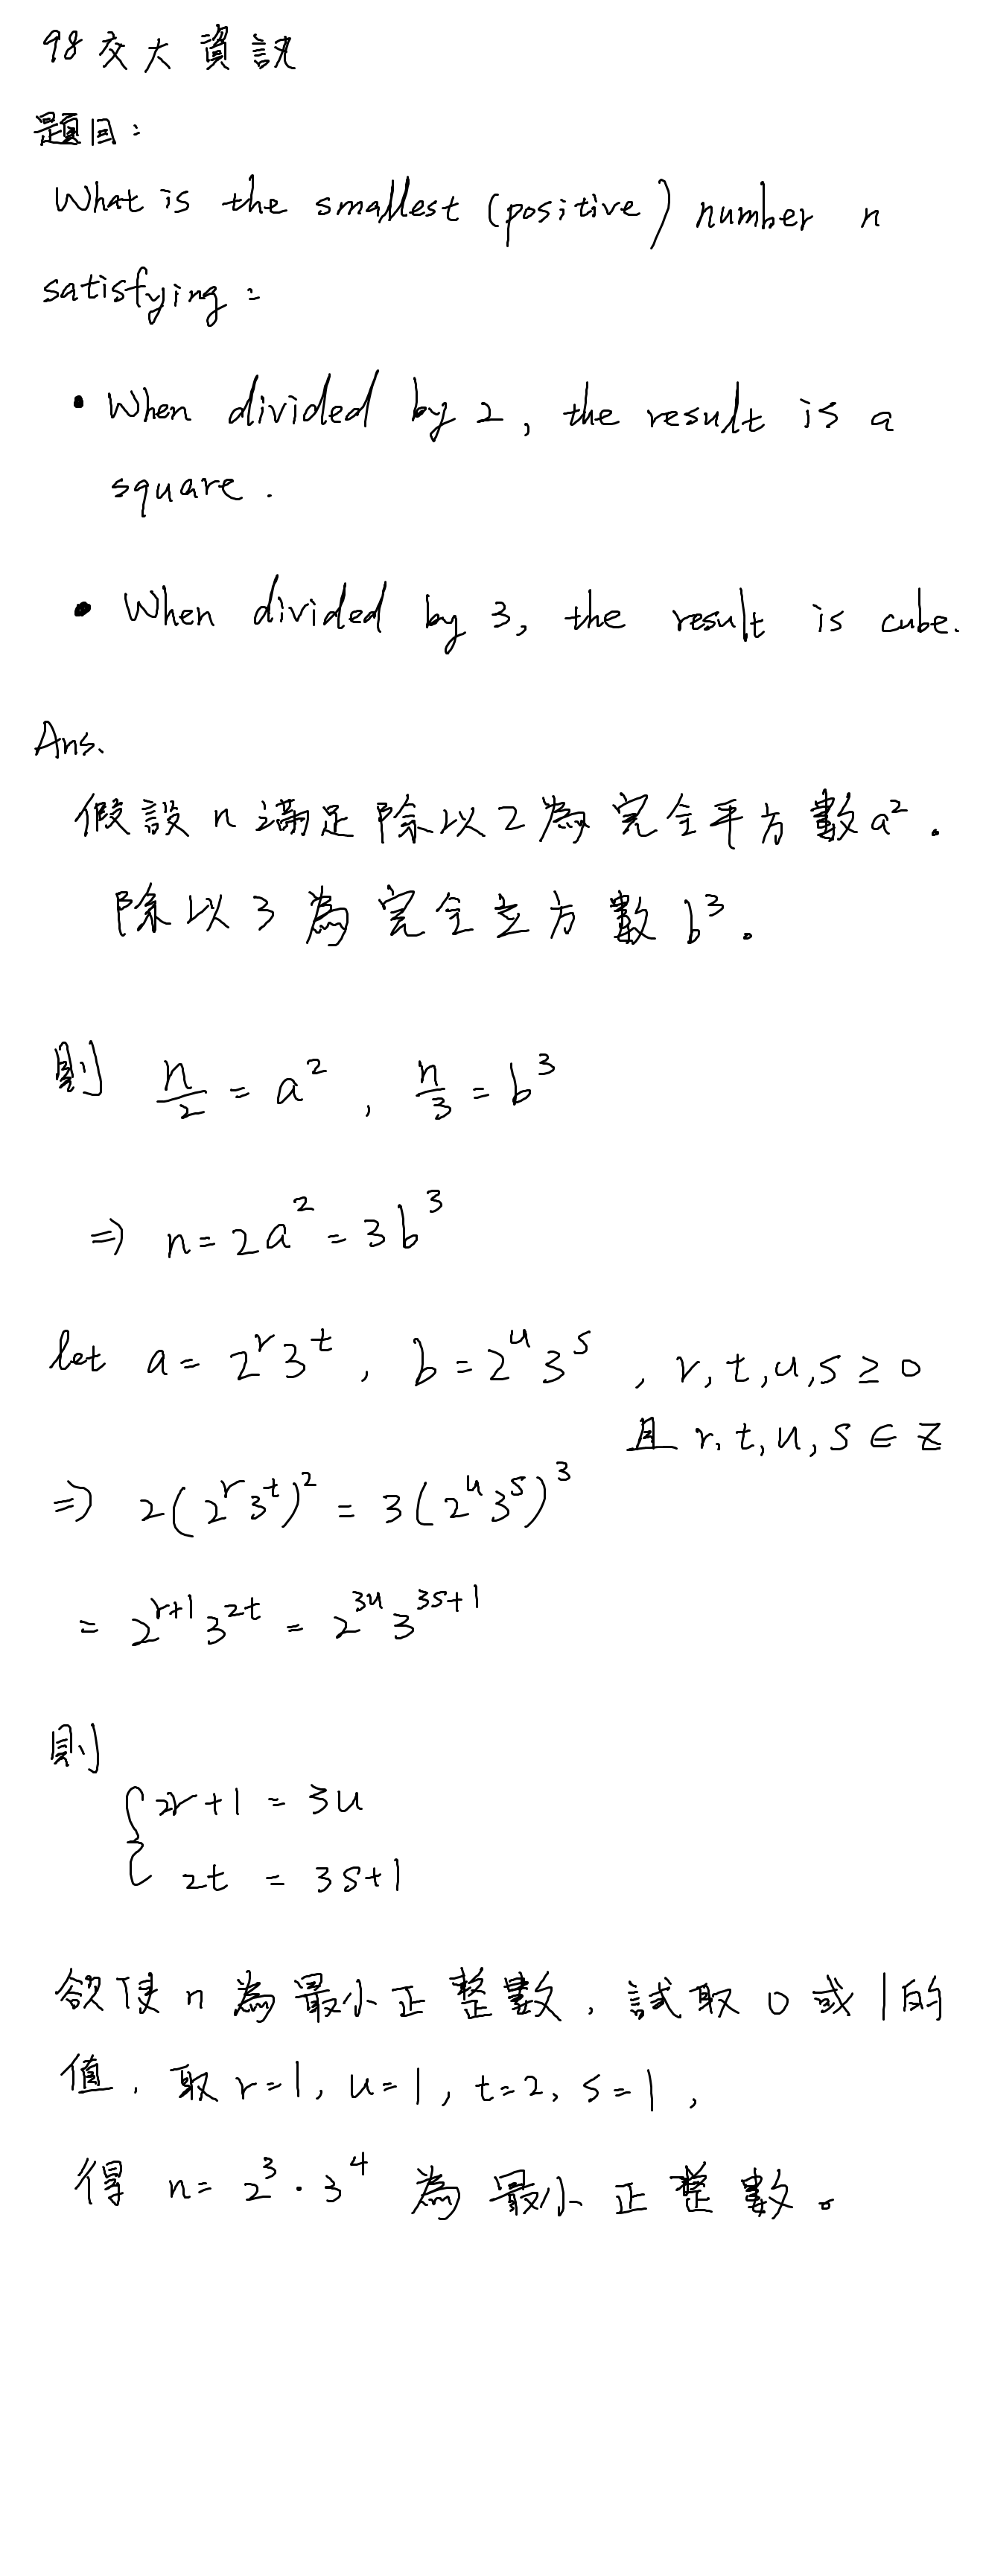 98交大資訊
題目:
What is the smallest (positive) number n
satisfying:
• When divided by 2, the result is a
square.
• When divided by 3, the result is cube.
Ans.
假設 n 滿足除以2為完全平方數a².
除以3為完全立方數 b³。
則 n/2 = a², n/3 = b³
⇒ n = 2a² = 3b³
let a = 2^r 3^t, b = 2^u 3^s, r, t, u, s ≥ 0
且 r, t, u, s ∈ Z
⇒ 2(2^r 3^t)² = 3(2^u 3^s)³
= 2^{r+1} 3^{2t} = 2^{3u} 3^{3s+1}
則
{ 2r+1 = 3u
2t = 3s+1
欲使 n 為最小正整數, 試取 0 或 1 的
值, 取 r=1, u=1, t=2, s=1,
得 n = 2³·3⁴ 為最小正整數。